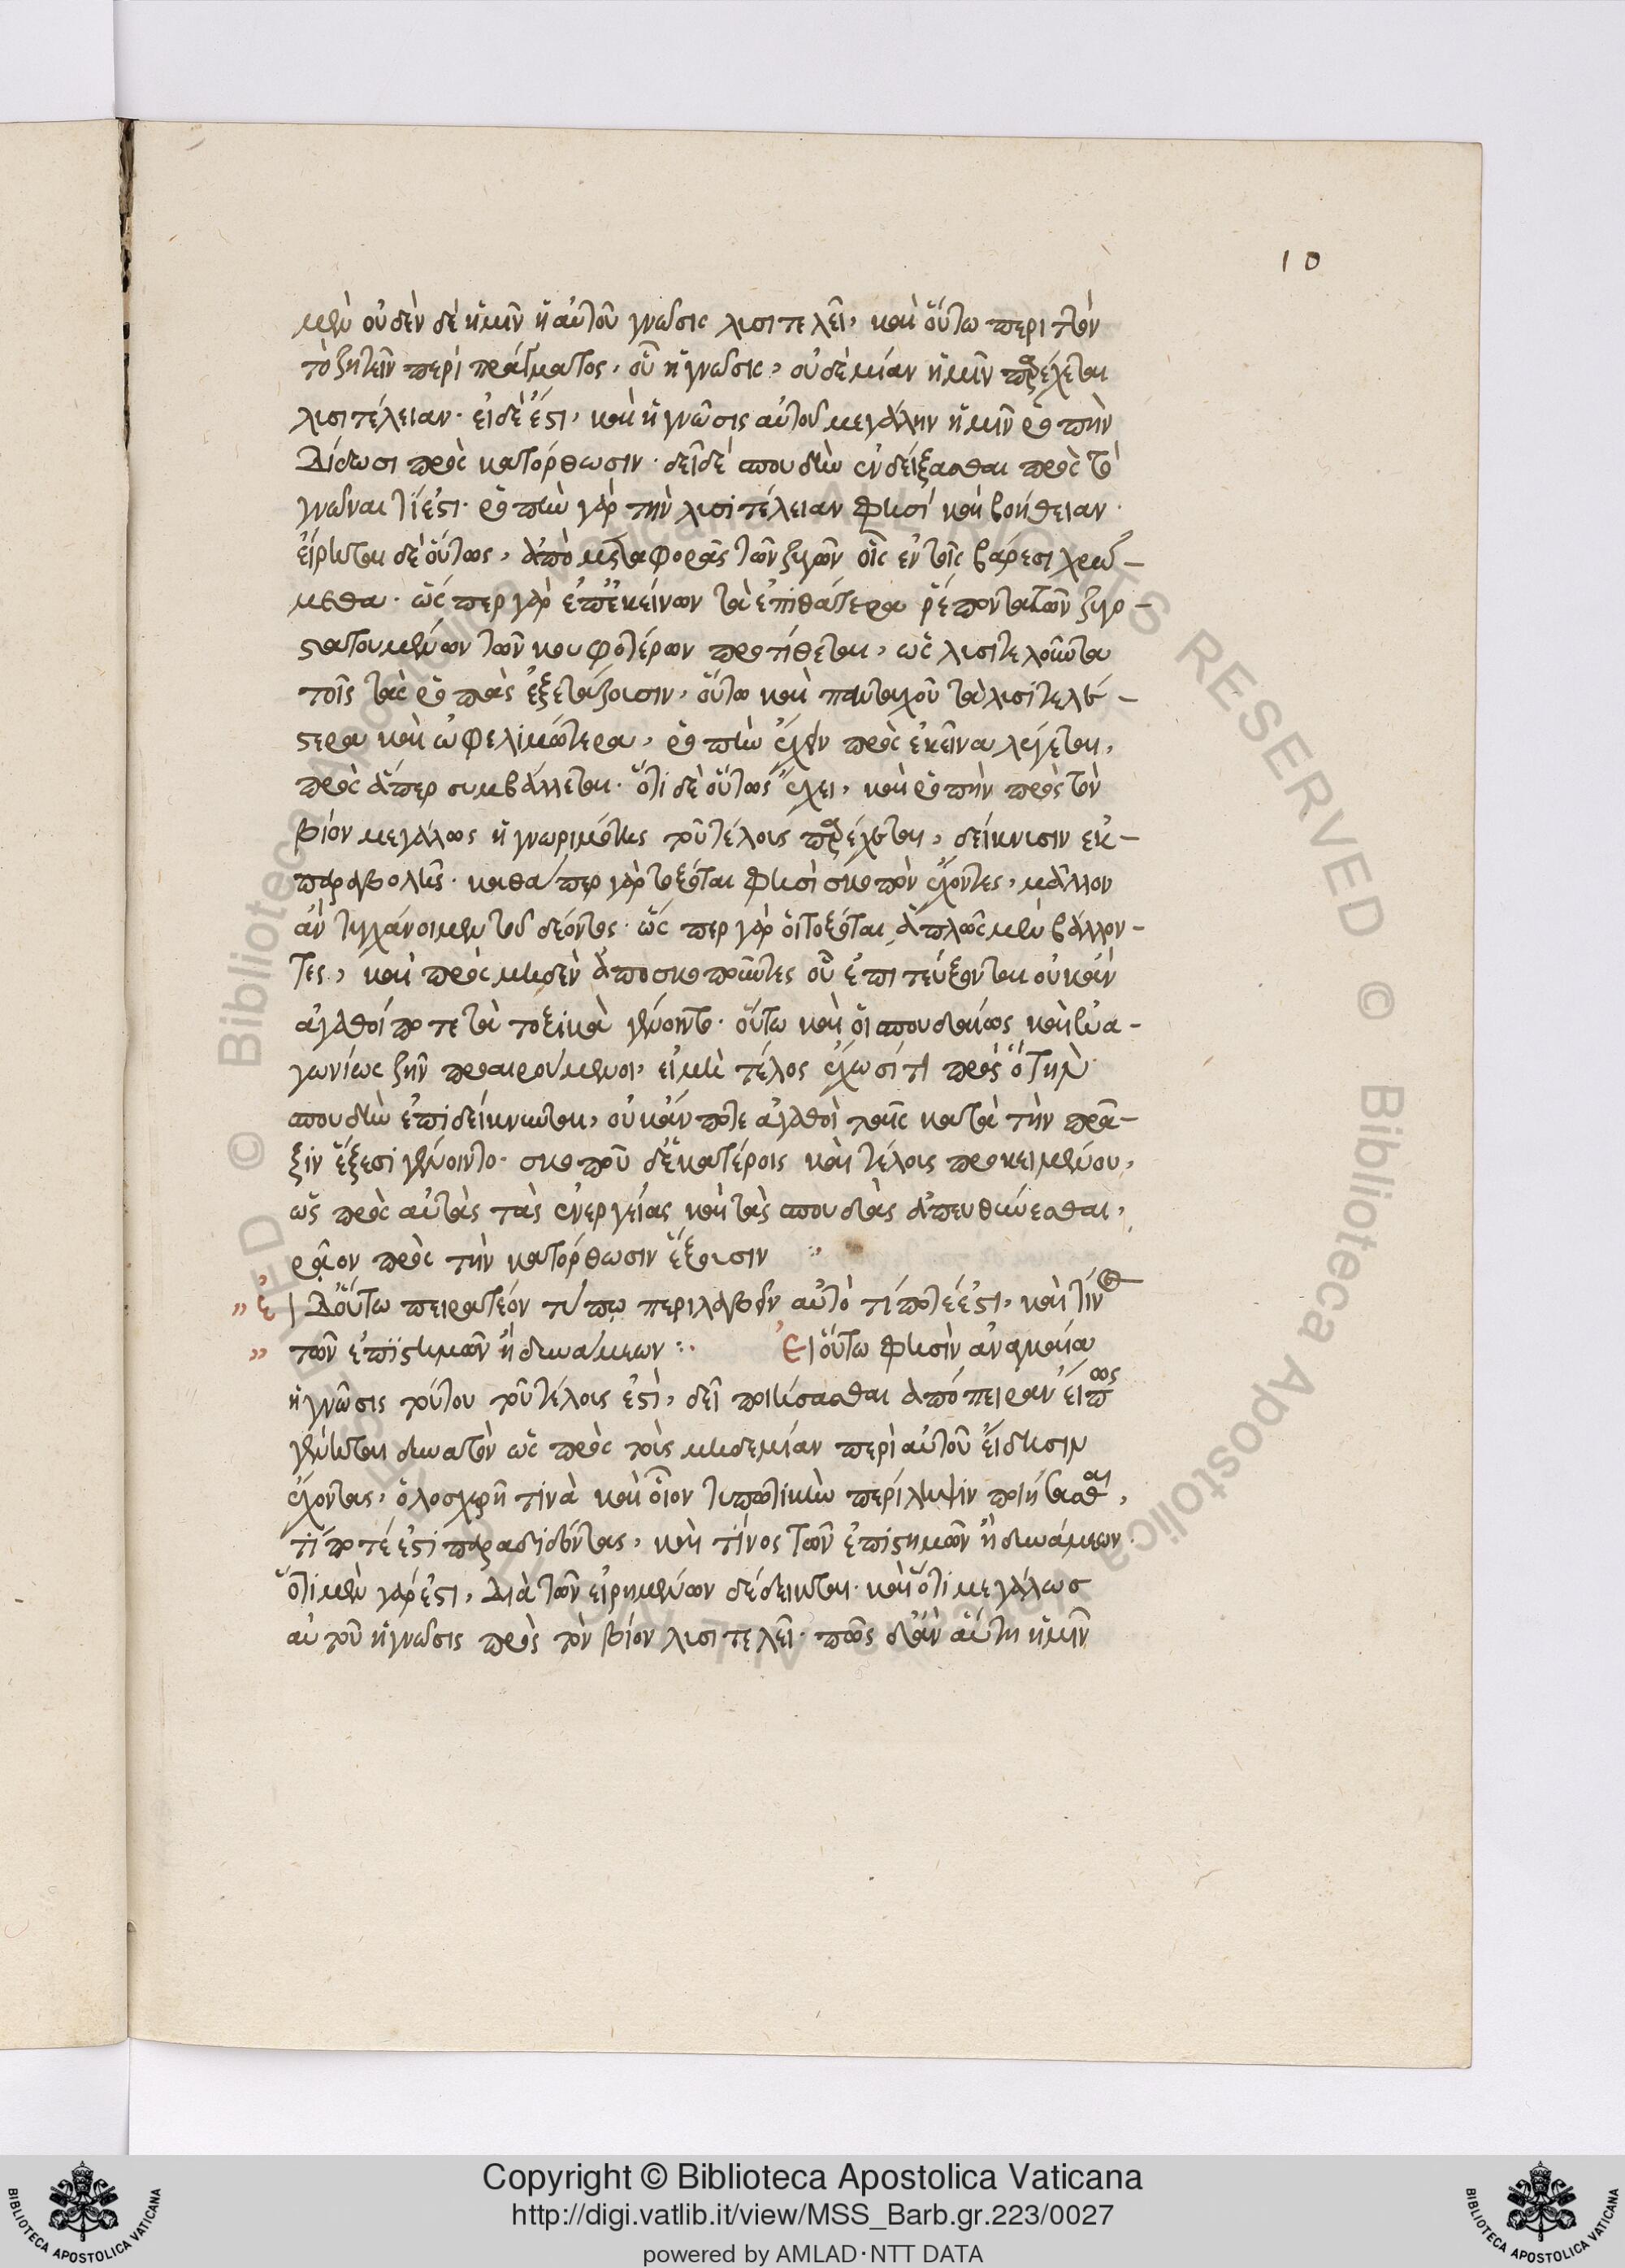 10
μὲν οὐδὲν δὲ ἡμῖν ἡ αὐτοῦ γνῶσις λυσιτελεῖ, καὶ οὕτω περιττὸν
τὸ ζητεῖν περὶ πράγματος, οὗ ἡ γνῶσις, οὐδεμίαν ἡμῖν παρέχεται
λυσιτέλειαν. εἰ δὲ ἔστι, καὶ ἡ γνῶσις αὐτοῦ μεγάλην ἡμῖν ῥοπὴν
δίδωσι πρὸς κατόρθωσιν. δεῖ δὲ σπουδὴν ἐνδείξασθαι πρὸς τὸ
γνῶναι τί ἐστι. ῥοπὴν γὰρ τὴν λυσιτέλειαν φησὶ καὶ βοήθειαν.
εἴρηται δὲ οὕτως, ἀπὸ μεταφορᾶς τῶν ζυγῶν οἷς ἐν τοῖς βάρεσι χρώ-
μεθα. ὥσπερ γὰρ ἐπ' ἐκείνων τὰ ἐπὶ θάτερα ῥέποντα τῶν ζυγο-
στατουμένων τῶν κουφοτέρων προτίθεται, ὡς λυσιτελοῦντα
τοῖς τὰς ῥοπὰς ἐξετάζουσιν, οὕτω καὶ πανταχοῦ τὰ λυσιτελέ-
στερα καὶ ὠφελιμώτερα, ῥοπὴν ἔχειν πρὸς ἐκεῖνα λέγεται,
πρὸς ἅπερ συμβάλλεται. ὅτι δὲ οὕτως ἔχει, καὶ ῥοπὴν πρὸς τὸν
βίον μεγάλως ἡ γνωριμότης τοῦ τέλους παρέχεται, δείκνυσιν ἐκ-
παραβολῆς. καθάπερ γὰρ τοξόται φησὶ σκοπὸν ἔχοντες, μᾶλλον
ἂν τυγχάνοιμεν τοῦ δέοντος. ὥσπερ γὰρ οἱ τοξόται ἁπλῶς μὲν βάλλον-
τες, καὶ πρὸς μηδὲν ἀποσκοποῦντες οὗ ἐπιτεύξονται οὐκ ἂν
ἀγαθοί ποτε τὰ τοξικὰ γένοιντο. οὕτω καὶ οἱ σπουδαίως καὶ ἐνα-
γωνίως ζῆν προαιρούμενοι, εἰ μὴ τέλος ἔχωσί τι πρὸς ὃ τὴν
σπουδὴν ἐπιδείκνυνται, οὐκ ἄν ποτε ἀγαθοὶ ταῖς κατὰ τὴν πρᾶ-
ξιν ἕξεσι γένοιντο. σκοποῦ δ' ἑκατέροις καὶ τέλους προκειμένου,
ὡς πρὸς αὐτὰς τὰς ἐνεργείας καὶ τὰς σπουδὰς ἀπευθύνεσθαι,
ῥᾷον πρὸς τὴν κατόρθωσιν ἕξουσιν :
" ἐ | Δ' οὕτω πειρατέον τύπῳ περιλαβεῖν αὐτὸ τί ποτέ ἐστι, καὶ τίνος
" τῶν ἐπιστημῶν ἢ δυνάμεων :. Ἐ | οὕτω φησὶν ἀναγκαία
ἡ γνῶσις τούτου τοῦ τέλους ἐστὶ, δεῖ ποιήσασθαι ἀπόπειραν εἴπως
γένηται δυνατὸν ὡς πρὸς τοὺς μηδεμίαν περὶ αὐτοῦ εἴδησιν
ἔχοντας, ὁλοσχερῆ τινὰ καὶ οἷον τυπωτικὴν περίληψιν ποιήσασθαι,
τί ποτέ ἐστι παραδιδόντας, καὶ τίνος τῶν ἐπιστημῶν ἢ δυνάμεων.
ὅτι μὲν γάρ ἐστι, διὰ τῶν εἰρημένων δέδεικται. καὶ ὅτι μεγάλως
αὐτοῦ ἡ γνῶσις πρὸς τὸν βίον λυσιτελεῖ. πῶς δ' ἂν αὕτη ἡμῖν
© Biblioteca Apostolica Vaticana ALL RIGHTS RESERVED
Copyright © Biblioteca Apostolica Vaticana
http://digi.vatlib.it/view/MSS_Barb.gr.223/0027
powered by AMLAD·NTT DATA
BIBLIOTECA APOSTOLICA VATICANA
BIBLIOTECA APOSTOLICA VATICANA